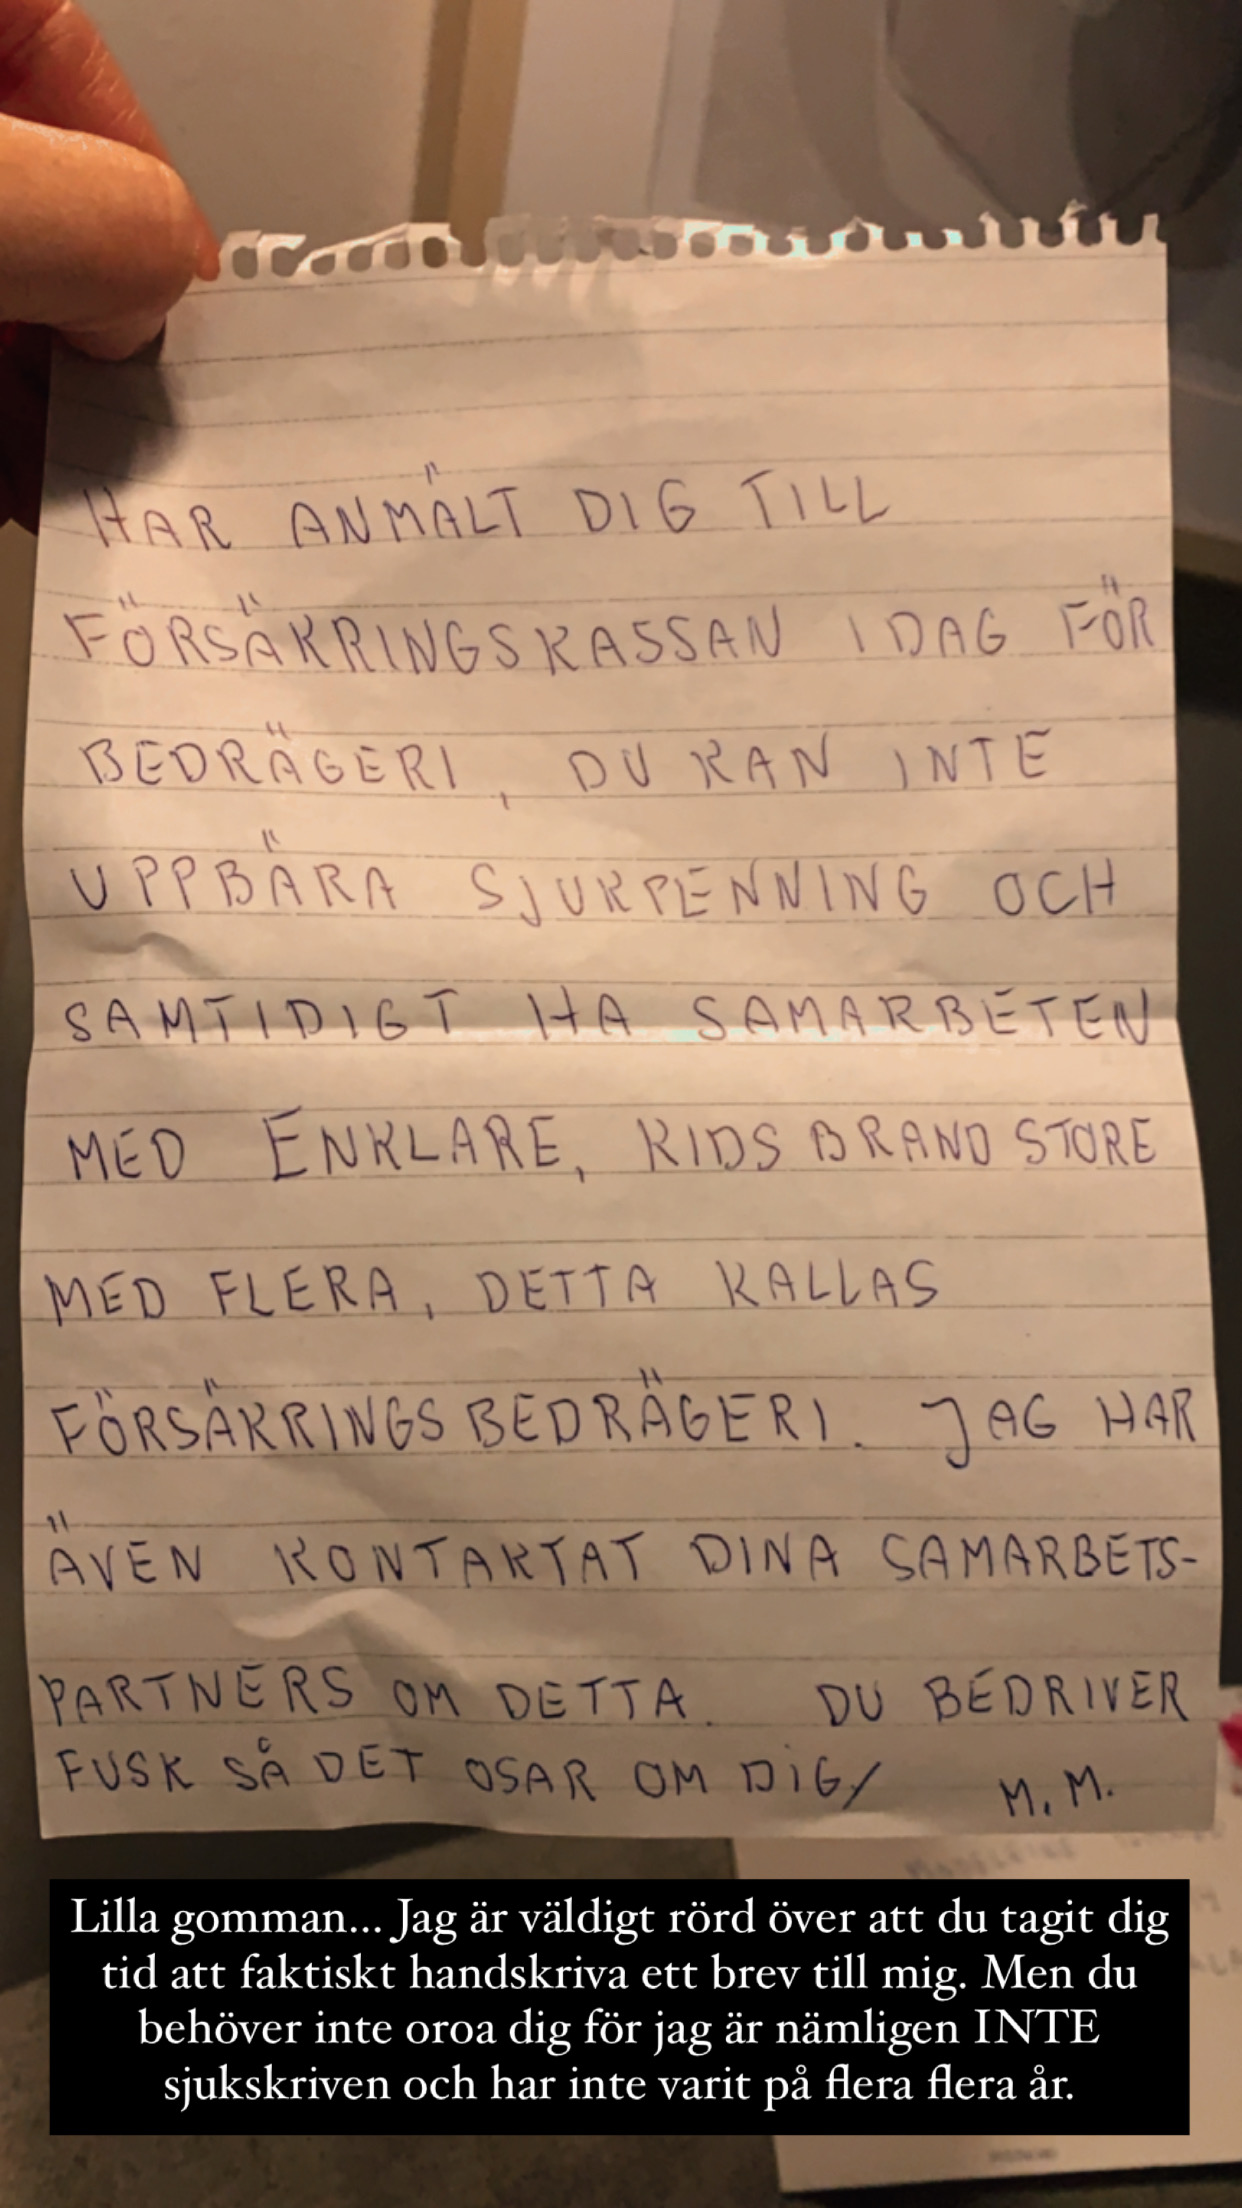 HAR ANMÄLT DIG TILL
FÖRSÄKRINGSKASSAN IDAG FÖR
BEDRÄGERI, DU KAN INTE
UPPBÄRA SJUKPENNING OCH
SAMTIDIGT HA SAMARBETEN
MED ENKLARE, KIDS BRAND STORE
MED FLERA, DETTA KALLAS
FÖRSÄKRINGSBEDRÄGERI. JAG HAR
ÄVEN KONTAKTAT DINA SAMARBETS-
PARTNERS OM DETTA. DU BEDRIVER
FUSK SÅ DET OSAR OM DIG/ M.M.
MADELEINE
Lilla gomman... Jag är väldigt rörd över att du tagit dig
tid att faktiskt handskriva ett brev till mig. Men du
behöver inte oroa dig för jag är nämligen INTE
sjukskriven och har inte varit på flera flera år.